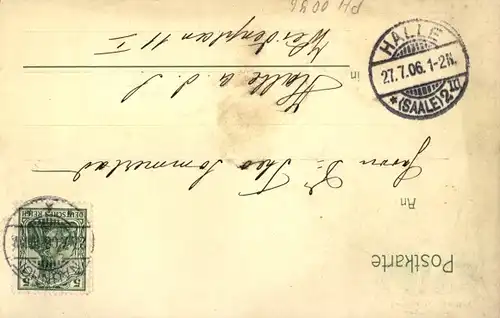 Postkarte
An
Herrn Dr. Theo Sommerlad
in Halle a. d. S.
Weidenplan 11 I
HALLE
27.7.06.1-2N.
* (SAALE) 2 II
DEUTSCHES REICH
5 5
PH 0096